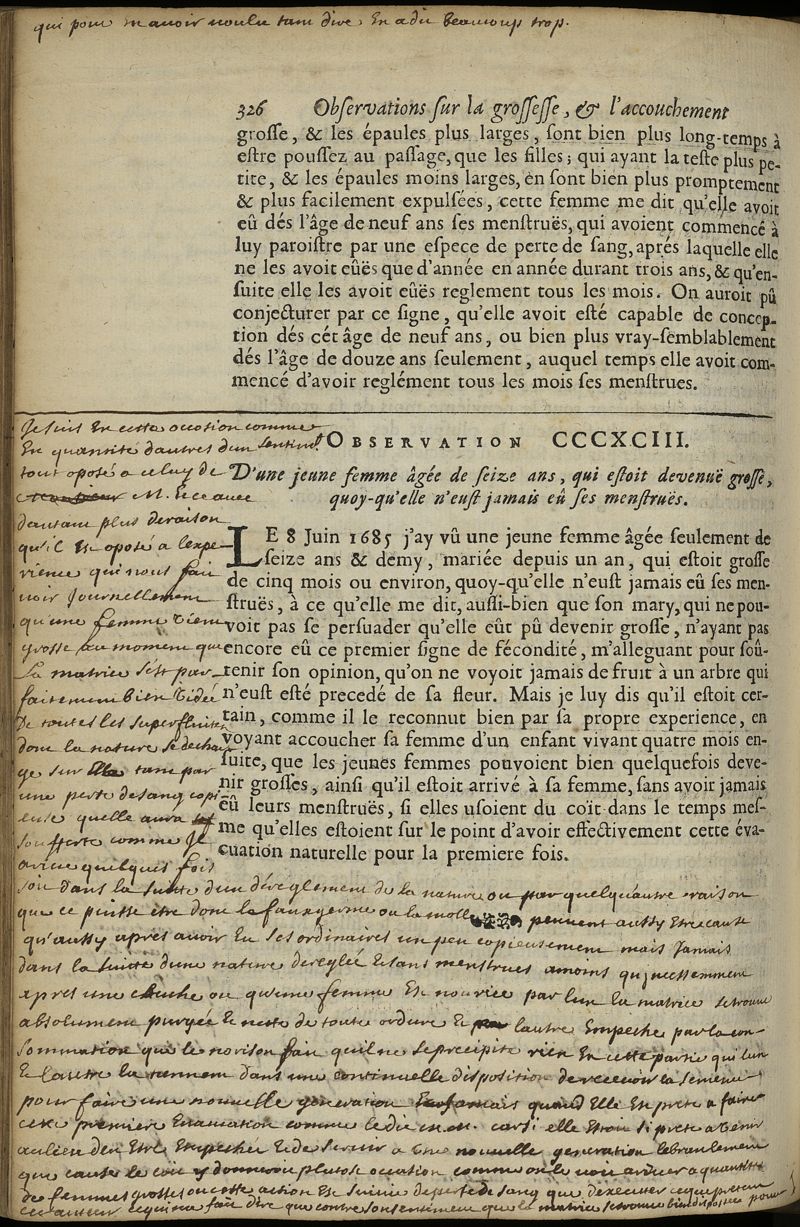 qui pour m'avoir voulu tant dire, En a dit beaucoup trop.
326 Obſervations ſur la groſſeſſe, & l'accouchement
groſſe, & les épaules plus larges, ſont bien plus long-temps à
eſtre pouſſez au paſſage, que les filles; qui ayant la teſte plus pe-
tite, & les épaules moins larges, en ſont bien plus promptement
& plus facilement expulſées, cette femme me dit qu'elle avoit
eû dés l'âge de neuf ans ſes menſtruës, qui avoient commencé à
luy paroiſtre par une eſpece de perte de ſang, aprés laquelle elle
ne les avoit eûës que d'année en année durant trois ans, & qu'en-
ſuite elle les avoit eûës reglement tous les mois. On auroit pû
conjecturer par ce ſigne, qu'elle avoit eſté capable de concep-
tion dés cét âge de neuf ans, ou bien plus vray-ſemblablement
dés l'âge de douze ans ſeulement, auquel temps elle avoit com-
mencé d'avoir reglément tous les mois ſes menſtrues.
OBSERVATION CCCXCIII.
D'une jeune femme âgée de ſeize ans, qui eſtoit devenuë groſſe,
quoy-qu'elle n'euſt jamais eû ſes menſtruës.
LE 8 Juin 1685 j'ay vû une jeune femme âgée ſeulement de
ſeize ans & demy, mariée depuis un an, qui eſtoit groſſe
de cinq mois ou environ, quoy-qu'elle n'euſt jamais eû ſes men-
ſtruës, à ce qu'elle me dit, auſſi-bien que ſon mary, qui ne pou-
voit pas ſe perſuader qu'elle eût pû devenir groſſe, n'ayant pas
encore eû ce premier ſigne de fécondité, m'alleguant pour ſoû-
tenir ſon opinion, qu'on ne voyoit jamais de fruit à un arbre qui
n'euſt eſté precedé de ſa fleur. Mais je luy dis qu'il eſtoit cer-
tain, comme il le reconnut bien par ſa propre experience, en
voyant accoucher ſa femme d'un enfant vivant quatre mois en-
ſuite, que les jeunes femmes pouvoient bien quelquefois deve-
nir groſſes, ainſi qu'il eſtoit arrivé à ſa femme, ſans avoir jamais
eû leurs menſtruës, ſi elles uſoient du coït dans le temps meſ-
me qu'elles eſtoient ſur le point d'avoir effectivement cette éva-
cuation naturelle pour la premiere fois.
Je suis En cette occasion comme
En quantité d'autres d'un sentiment
tout oposé a celuy de
M. Et ce avec
d'autant plus de raison
qu'il Est oposé a l'expe-
rience qui nous fait
voir Journellement
qu'une femme vient
grosse au moment que
la matrice s'est par-
faitement bien vidée
de toutes les superfluites
dont la nature se dechar
ge sur tant par
une perte de sang copi
euse quelle aura
soufferte comme Il
arive quelques fois
soit dans la suitte d'un déreglement de la nature ou par quelqu'autre raison
que ce puisse être dont le faux germe ou la molle peuvent aussy Etre cause
qu'aussy apres avoir Eu ses ordinaires un peu copieusement mais Jamais
dans la suitte d'une nature dereglée Et sans menstrues amoins que
apres une couche ou qu'une femme Est nourice par l'un la matrice se trouve
absolument purgée Et nette de toute ordure Et par l'autre Empeche par la con-
sommation que le norison fait qu'il ne se precipite rien En cette partie qui l'un
Et l'autre la tiennent dans une continuelle disposition de recevoir la semence
pour faire une nouvelle generation Et Jamais quand Elle Est prete a faire
cete premiere Evacuation comme le dit M. car si elle Etoit si prete a venir
au lieu den Etre Empeschée Et de servir a une nouvelle generation lebranlement
que cause le coit y donneroit plutost occasion comme on le voit ariver a quantité
de femmes grosses ou cette action Est suivie de perte de sang que